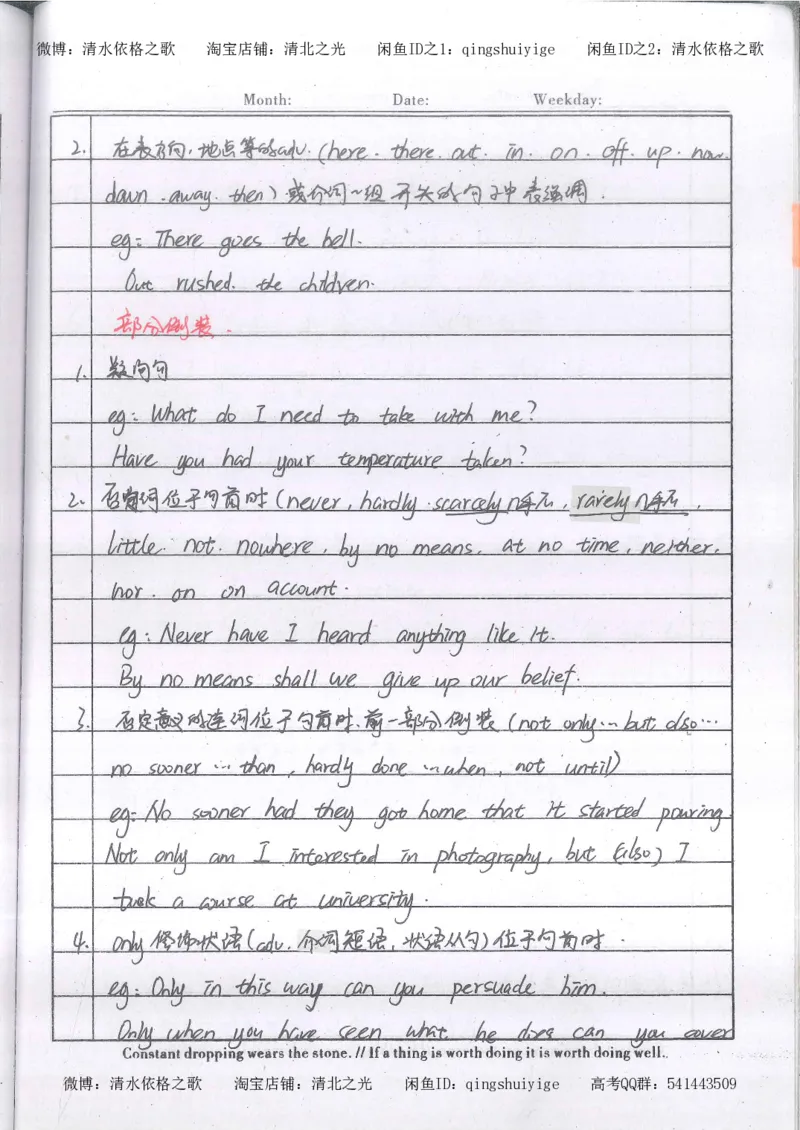 微博：清水依格之歌 淘宝店铺：清北之光 闲鱼ID之1：qingshuiyige 闲鱼ID之2：清水依格之歌
Month: Date: Weekday:
2. 在表方向，地点等的adv. (here. there. out. in. on. off. up. now.
down .away. then) 或介词~组 开头的句子中表强调.
eg: There goes the bell.
Out rushed. the children.
部分倒装.
1. 疑问句
eg: What do I need to take with me?
Have you had your temperature taken?
2. 否定词位于句首时 (never, hardly. scarcely几乎不, rarely几乎不,
little. not. nowhere, by no means. at no time, neither.
nor. on on account.
eg: Never have I heard anything like it.
By no means shall we give up our belief.
3. 否定意义的连词位于句首时，前一部分倒装 (not only… but also…
no sooner … than, hardly done … when, not until)
eg: No sooner had they got home that it started pouring.
Not only am I interested in photography, but (also) I
took a course at university.
4. only 修饰状语 (adv. 介词短语, 状语从句) 位于句首时.
eg: Only in this way can you persuade him.
Only when you have seen what he does can you cover
Constant dropping wears the stone. // If a thing is worth doing it is worth doing well..
微博：清水依格之歌 淘宝店铺：清北之光 闲鱼ID：qingshuiyige 高考QQ群：541443509